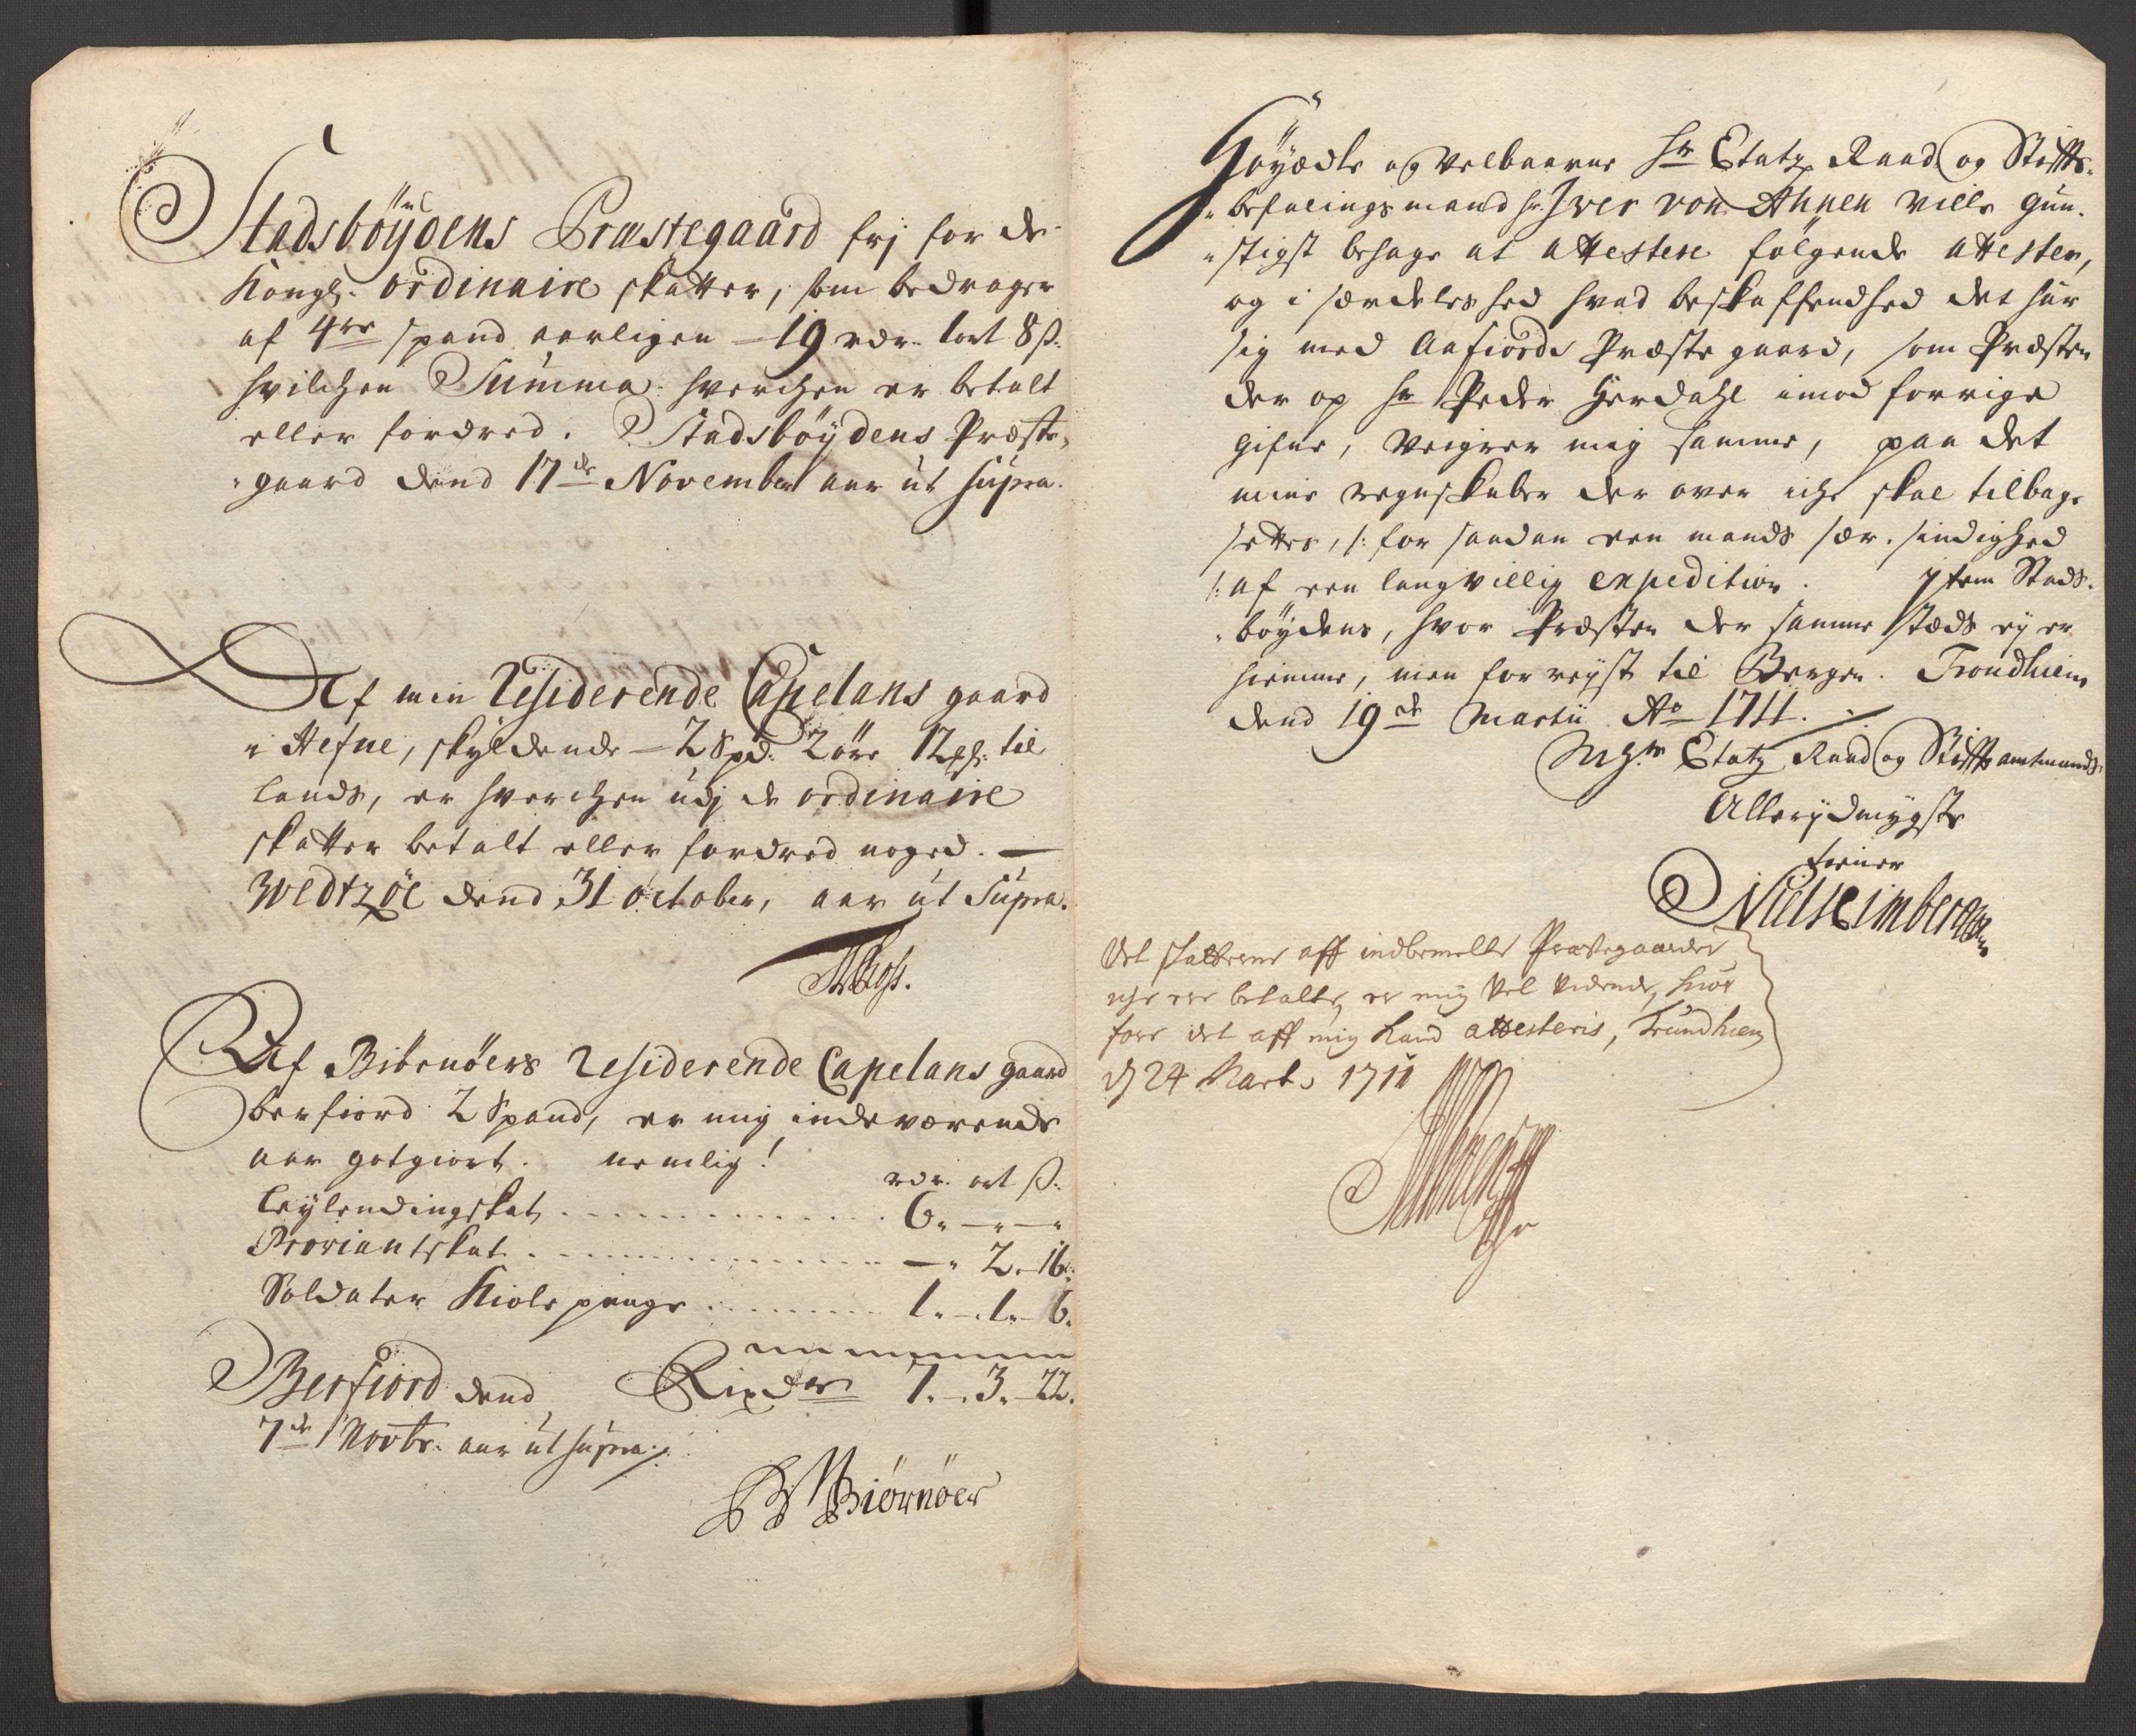 Stadsböÿdens Præstegaard frj for de
Kongl. ordinaire skatter, som bedrager
af 4re spand aarligen – 19 rdr. 1ort 8 ß.
hvilchen Summa hverchen er betalt
eller fordred. Stadsböÿdens Præste-
gaard dend 17de November aar ut supra.
Af min Residerende Capelans gaard
i Hefne, skÿldende – 2 Spd. 2 öre 12 til
lands, er hverchen udj de ordinaire
skatter betalt eller fordred noged. –
dend 31 october, aar ut Supra.
Af Biörnöers Residerende Capelans gaard
berfiord 2 Spand, er mig indeværende
aar gotgiort. nemlig!
rdr. ort ß.
Leÿlendingskat . . . 6. – " – "
Proviantskat . . . – " 2. 16.
Soldater Kiole penge . . . 1. – 1. – 6.
Berfiord dend Rixdr 7. – 3. – 22.
7de Novbr. aar ut supra ./.
Biörnöer
Höÿædle og Velbaarne Hr Etatz Raad og Stiffts-
befalings mand hr. Iver von Ahnen ville gun-
stigst behage at attestere fölgende attester,
og i særdeleshed hvad beskaffendhed det har
sig med Aafiords Præste gaard, som Præsten
der op Hr Peder Hierdahl imod forrige
gifne, veigrer mig samme, paa det
mine regnskaber der over iche skal tilbage
settes, /: for saadan een mands sær-sindighed
/: af een langvillig expedition. Item Stads-
böÿdens, hvor Præsten der samme stæds eÿ er
hiemme, men forreÿst til Bergen. Trondhiem
dend 19de Martii Ao 1711. ./.
Etatz Raad og Stiffts amtmands
Allerÿdmÿgste
tiener
Det skatterne aff indbemelte Præstegaarder
iche ere betalte, er mig vel vidende, huor
fore det aff mig hand attesteris, Trundhiem
d 24 Marts 1711